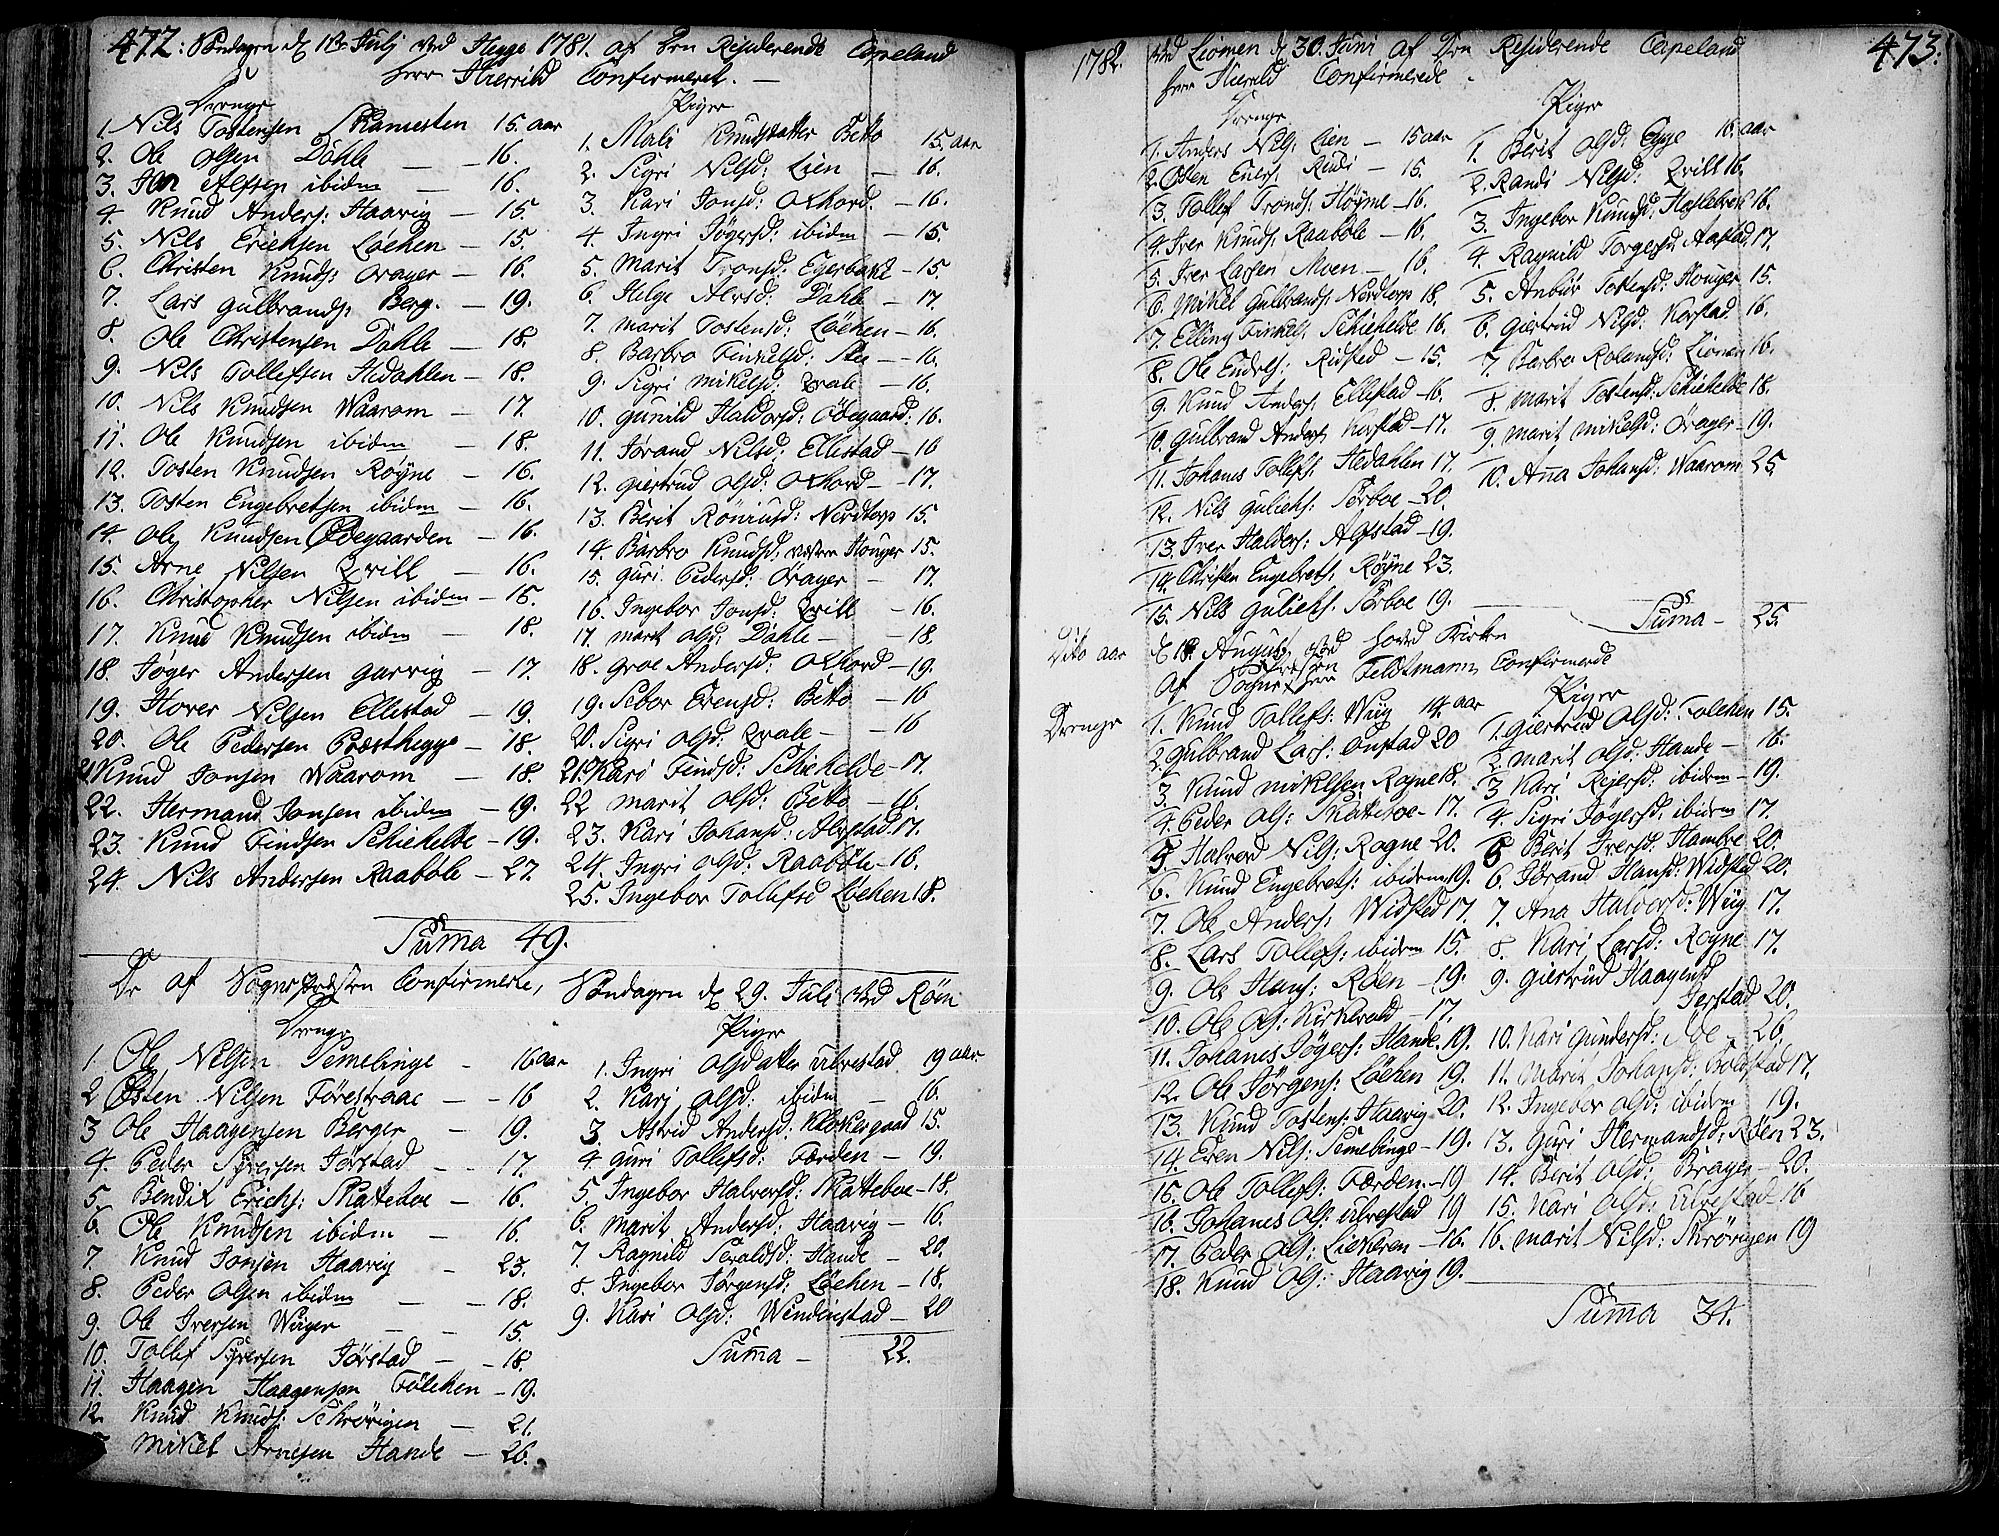 472: Søndagen d. 1te Julj ved Hegge 1781. af Den Residerende Capeland
Herr Hierrild Confirmeret. —
Drenge
1. Nils Tostensen Skamesten 15. aar
2. Ole Olsen Dahle — 16.
3. Jon Alfsen ibidem — 16.
4. Knud Anders: Haavig — 15.
5. Nils Erichsen Løchen — 15.
6. Christen Knuds: Drager — 16.
7. Lars Gulbrands: Berg. — 19.
8. Ole Christensen Dahle — 18.
9. Nils Tollefsen Hedahlen — 18.
10. Nils Knudsen Waarom — 17.
11. Ole Knudsen ibidem — 18.
12. Tosten Knudsen Røyne — 16.
13. Tosten Engebretsen ibidem — 16.
14. Ole Knudsen Ødegaarden — 16.
15. Arne Nilsen Qvill — 16.
16. Christopher Nilsen ibidem — 15.
17. Knud Knudsen ibidem — 18.
18. Jøger Andersen Garvig — 17.
19. Hover Nilsen Ellestad — 19.
20. Ole Pedersen Præsthegge — 18.
21. Knud Jonsen Waarom — 18.
22. Hermand Jonsen ibidem — 19.
23. Knud Findsen Schiehelde — 19.
24. Nils Andersen Raabøle — 27.
Piger
1. Mali Knudsdatter Beito 15. aar
2. Sigri Nilsd: Lien — 16.
3. Kari Jonsd: Oxhord. — 16.
4. Ingri Jøgersd: ibidem — 15.
5. Marit Tronsd: Egerbake — 15
6. Helge Alvsd: Dahle — 17.
7. Marit Tostensd: Løchen — 16.
8. Barbro Finkelsd: Lien — 16.
9. Sigri Mikelsd: Qvale — 16.
10. Gunild Haldorsd: Ødegaard: 16.
11. Jørand Nilsd: Ellestad — 16
12. Giertrud Olsd: Oxhord — 17.
13. Berit Romundsd: Nordtorp 15.
14. Barbro Knudsd: vestre Houger 15.
15. Guri Pedersd: Drager — 17.
16. Ingebor Jonsd: Qvill — 16.
17. Marit Olsd: Dahle — 18.
18. Groe Andersd: Oxhord — 19.
19. Sebor Evensd: Beito — 16
20. Sigri Olsd: Qvale — 16
21. Kari Findsd: Schiehelde — 17.
22. Marit Olsd: Beito — 16.
23. Kari Johansd: Alfstad. 17.
24. Ingri Olsd: Raabøle — 16.
25. Ingebor Tollefsd Løchen 18.
Suma 49.
De af Sognepræsten Confirmerte, Søndagen d. 29. Juli ved Røen
Drenge
1. Ole Nilsen Semelinge — 16 aar
2. Østen Nilsen Førestraae — 16
3. Ole Haagensen Berger — 19.
4. Peder Syversen Jørstad — 17.
5. Bendix Erichs: Skatteboe — 16.
6. Ole Knudsen ibidem — 16.
7. Knud Jonsen Haavig — 23.
8. Peder Olsen ibidem — 18.
9. Ole Iversen Weiger — 15.
10. Tollef Syversen Jørstad — 18.
11. Haagen Haagensen Følchen — 19.
12. Knud Knuds: Schrøvigen — 21.
Mikel Arnesen Hande — 26.
Piger
1. Ingri Olsdatter Ulvestad 19 aar
2. Kari Olsd: ibidem — 16.
3. Astrid Andersd: Klokergaard 15.
4. Guri Tollefsd: Færden — 19.
5. Ingebor Halversd: Skatteboe — 18.
6. Marit Andersd: Haavig — 16.
7. Ragnild Haraldsd: Hande — 20.
8. Ingebor Jørgensd: Løchen — 18.
9. Kari Olsd: Windinstad — 20
Suma — 22.
473.
1782. ved Liomen d. 30. Juni af Den Residerende Capeland
Herr Hierild Confirmerede
Drenge
1. Anders Nils: Lien — 15 aar
2. Østen Evers: Rudi — 15.
3. Tollef Tronds: Høyme — 16.
4. Iver Knuds: Raabøle — 16.
5. Iver Larsen Moen — 16.
6. Mikel Gulbrands: Nordtorp 18.
7. Elling Finkels: Schiehelde 16.
8. Ole Endres: Ridsted — 15.
9. Knud Anders: Ellestad — 16.
10. Gulbrand Anders: Korstad — 17.
11. Johanes Tollefs: Hedahlen 17.
12. Nils Guliches: Sørboe — 20.
13. Iver Haldors: Alfstad — 19.
14. Christen Engebrets: Røyne 23.
15. Nils Guliches: Sørboe 19.
Piger
1. Berit Olsd: Egge 16. aar
2. Randi Nilsd: Qvill 16.
3. Ingebor Knudsd: Haslebrek 16.
4. Ragnild Torgersd: Aafstad 17.
5. Anbiør Tostensd: Houger 15.
6. Giertrud Nilsd: Korstad 16.
7. Barbro Rolandsd: Liomen 16.
8. Marit Tostensd: Schiehelde 18.
9. Marit Mikelsd: Drager — 19.
10. Anna Johansd: Waarom 25.
Suma — 25.
Dito aar d. 18. August, ved Hovd Kirken
af Sognepræsten Herr Feldtmann Confirmerde
Drenge
1. Knud Tollefs: Wiig 14. aar
2. Gulbrand Lars: Onstad 20
3. Knud Mikelsen Rogne 18.
4. Peder Ols: Skatteboe — 17.
5. Halvord Nils: Rogne 20.
6. Knud Engebrets: ibidem 19.
7. Ole Anders: Widsted 17.
8. Lars Tollefs: ibidem 15.
9. Ole Hans: Røen — 19.
10. Ole Ols: Kirkevold — 17.
11. Johanes Jøgers: Hande. 19.
12. Ole Jørgens: Løchen 19.
13. Knud Tostens: Haavig 20.
14. Even Nils: Semelinge — 19.
15. Ole Tollefs: Færden. — 19
16. Johanes Ols: Ulvestad 19
17. Peder Ols: Liekeren — 16.
18. Knud Ols: Haavig 19.
Piger
1. Giertrud Olsd: Folchen 15.
2. Marit Olsd: Hande — 16.
3. Kari Reiersd: ibidem — 19.
4. Sigri Jøgersd: ibidem 17.
5. Berit Iversd: Hambre 20.
6. Jørand Hansd: Widsted 20.
7. Ana Halvorsd: Wiig 17.
8. Kari Larsd: Rogne 17.
9. Giertrud Haagensd
Jerstad 20.
10. Kari Gundersd: Moe — 26.
11. Marit Johansd: Bolstad 17.
12. Ingebor Olsd: ibidem 19.
13. Guri Hermandsd: Røen 23.
14. Berit Olsd: Brager — 20.
15. Kari Olsd: Ulvestad — 16
16. Marit Nilsd: Skrøvigen 19
Suma 34.